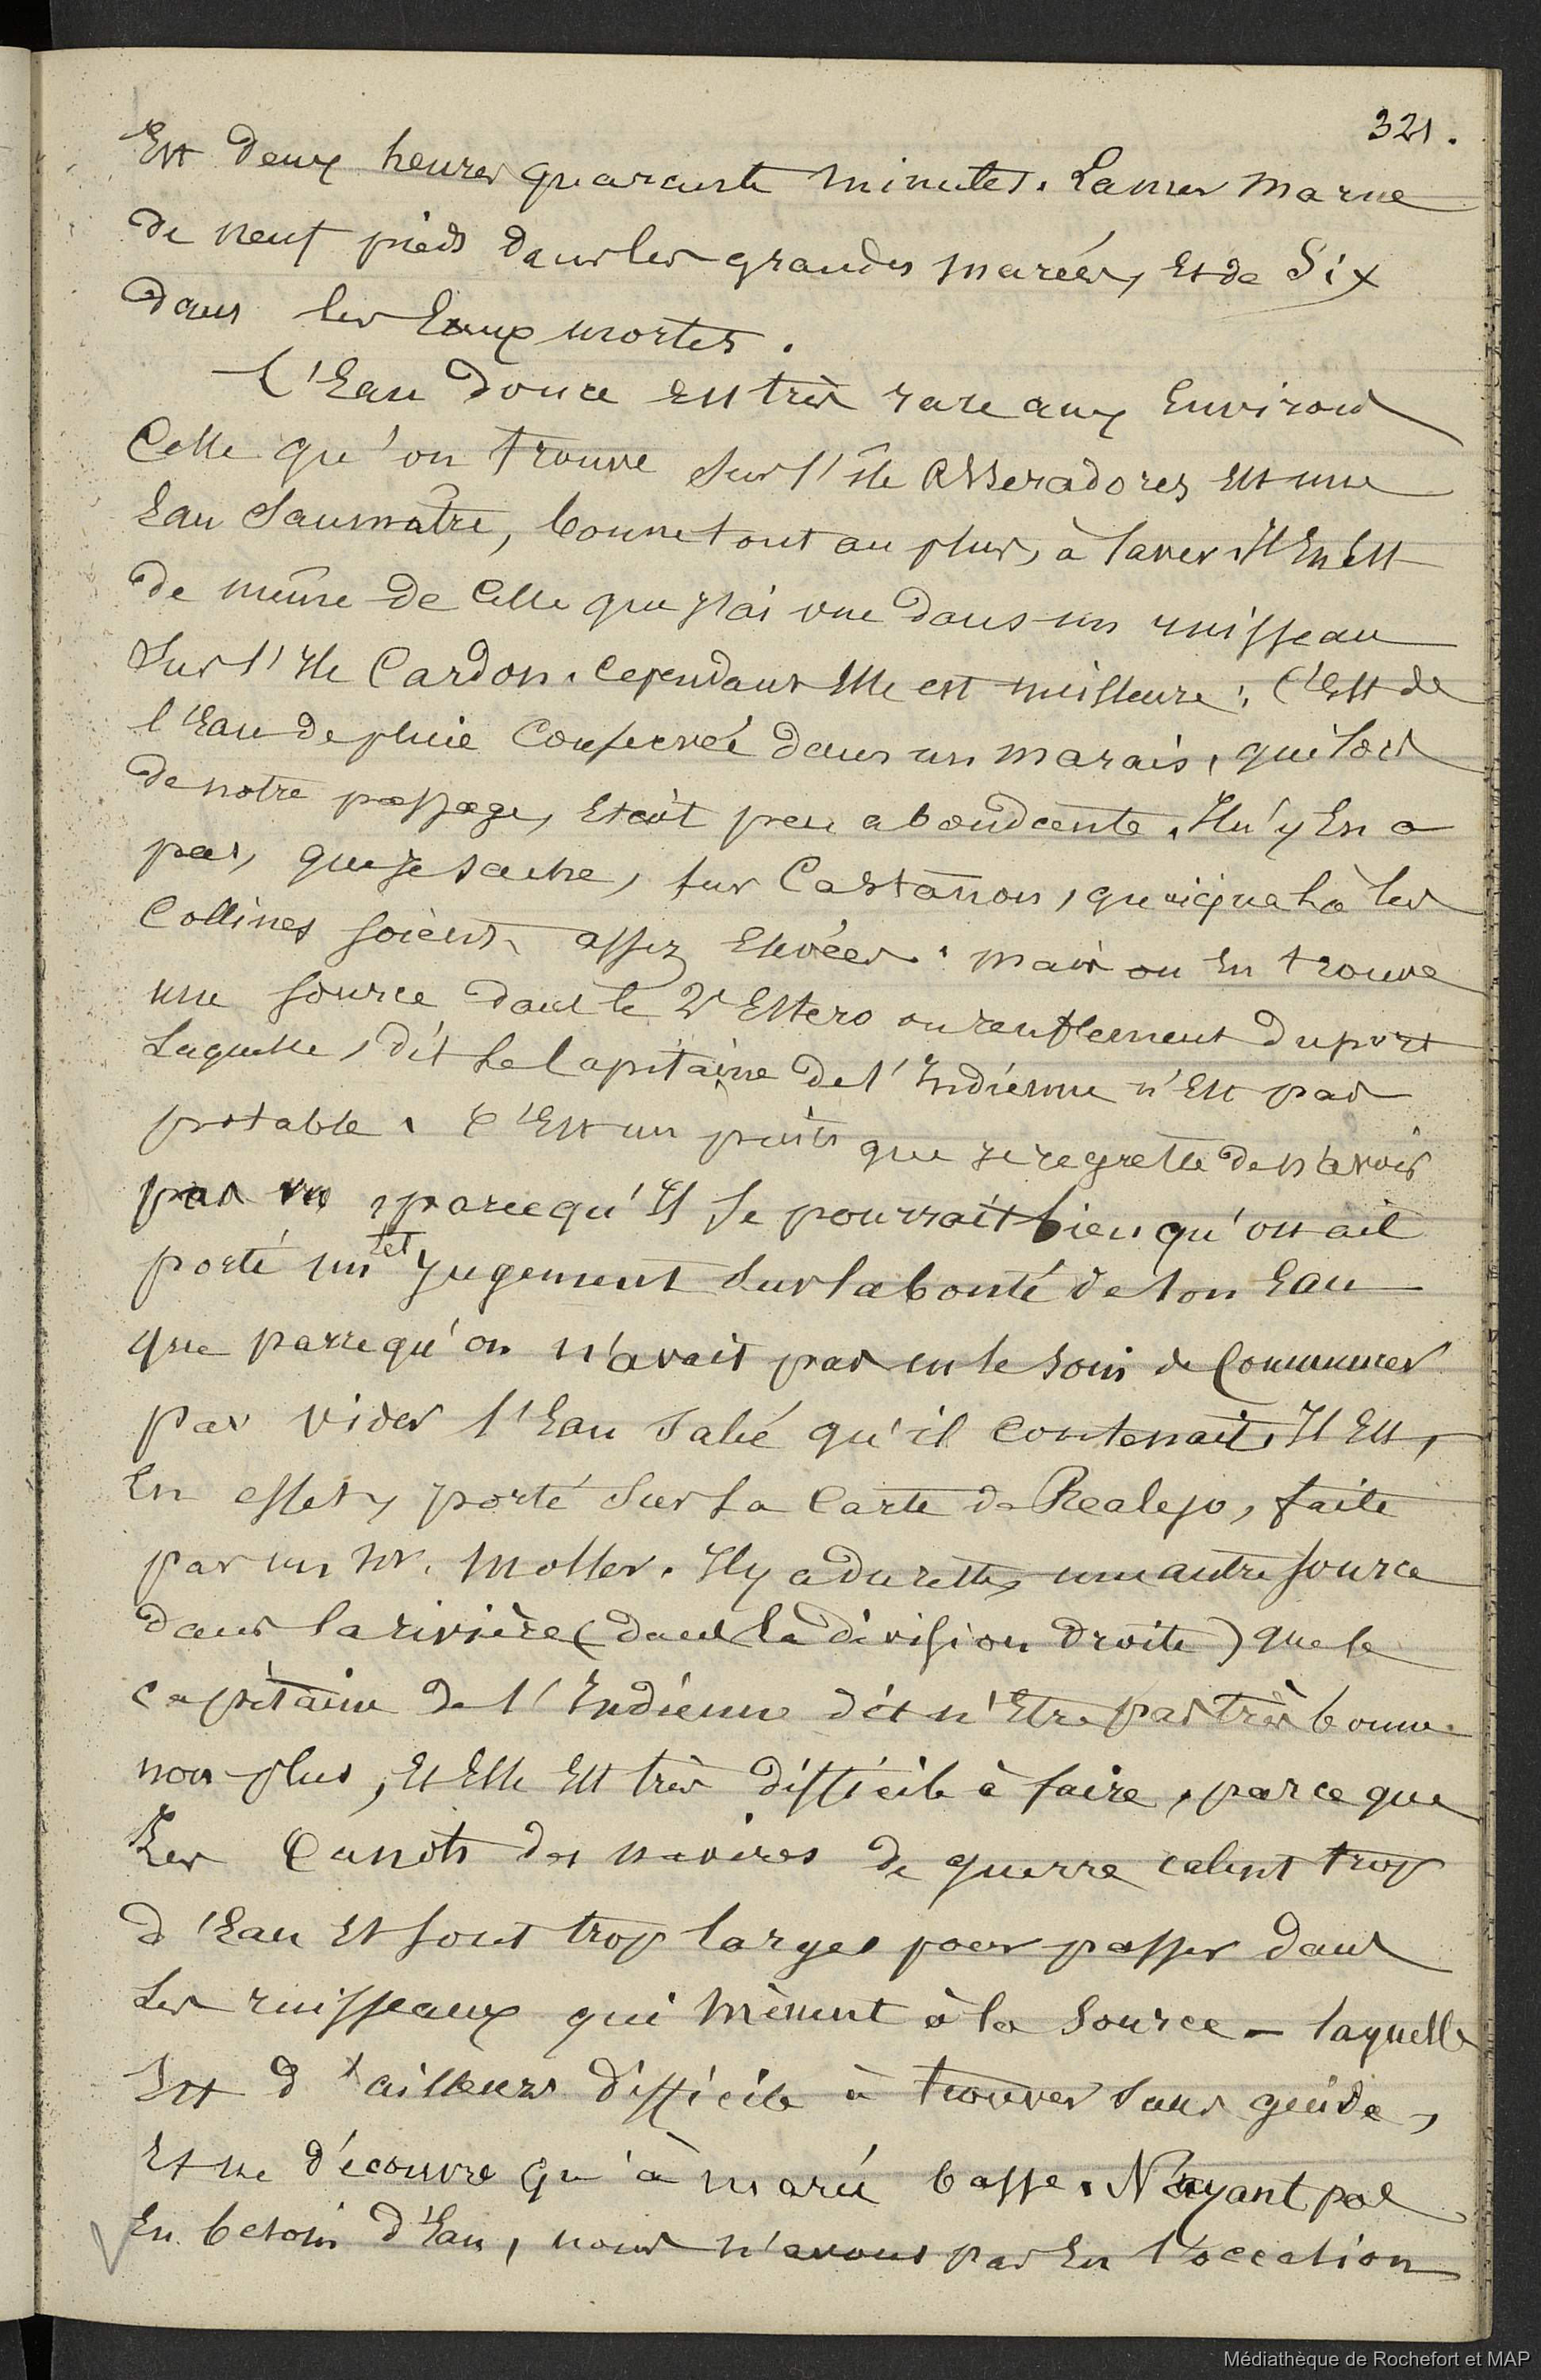 321.
Est deux heures quarante minutes. La mer marne
de neuf pieds dans les grandes marées, et de Six
dans les Eaux mortes.
L'Eau douce est très rare aux Environs
Celle qu'on trouve sur l'île Asseradores est une
Eau Saumâtre, bonne tout au plus, à laver. Il En est
de même de Celle que j'ai vue dans un ruisseau
Sur l'Ile Cardon. Cependant Elle est meilleure : C'Est de
l'Eau de pluie Conservée dans un marais, qui lors
de notre passage, Etait peu abondante. Il n'y En a
pas, que je sache, sur Castañon, quoique là les
Collines soient assez Elevées. mais on En trouve
une source dans le 2e Estero ou renflement du port
Laquelle, dit Le Capitaine de l'Indienne n'Est pas
potable. C'Est un puits que je regrette de n'avoir
pas vu, parcequ'Il se pourrait bien qu'on ait
porté un tel jugement sur la bonté de son Eau
que parcequ'on n'avait pas eu le soin de Commencer
par vider l'Eau Salée qu'il contenait. Il Est,
En effet, porté sur la Carte de Realejo, faite
par un Mr. Moller. Il y a du reste, une autre source
dans la rivière (dans la division droite) que le
capitaine de l'Indienne dit n'Etre pas très bonne
non plus, Et Elle Est très difficile à faire, parce que
Les Canots des navires de guerre calent trop
d'Eau Et sont trop larges pour passer dans
Les ruisseaux qui mènent à la Source - laquelle
Est d'ailleurs difficile à trouver sans guide,
Et ne découvre qu'à marée basse. N'ayant pas
Eu besoin d'Eau, nous n'avons pas Eu l'occasion
Médiathèque de Rochefort et MAP